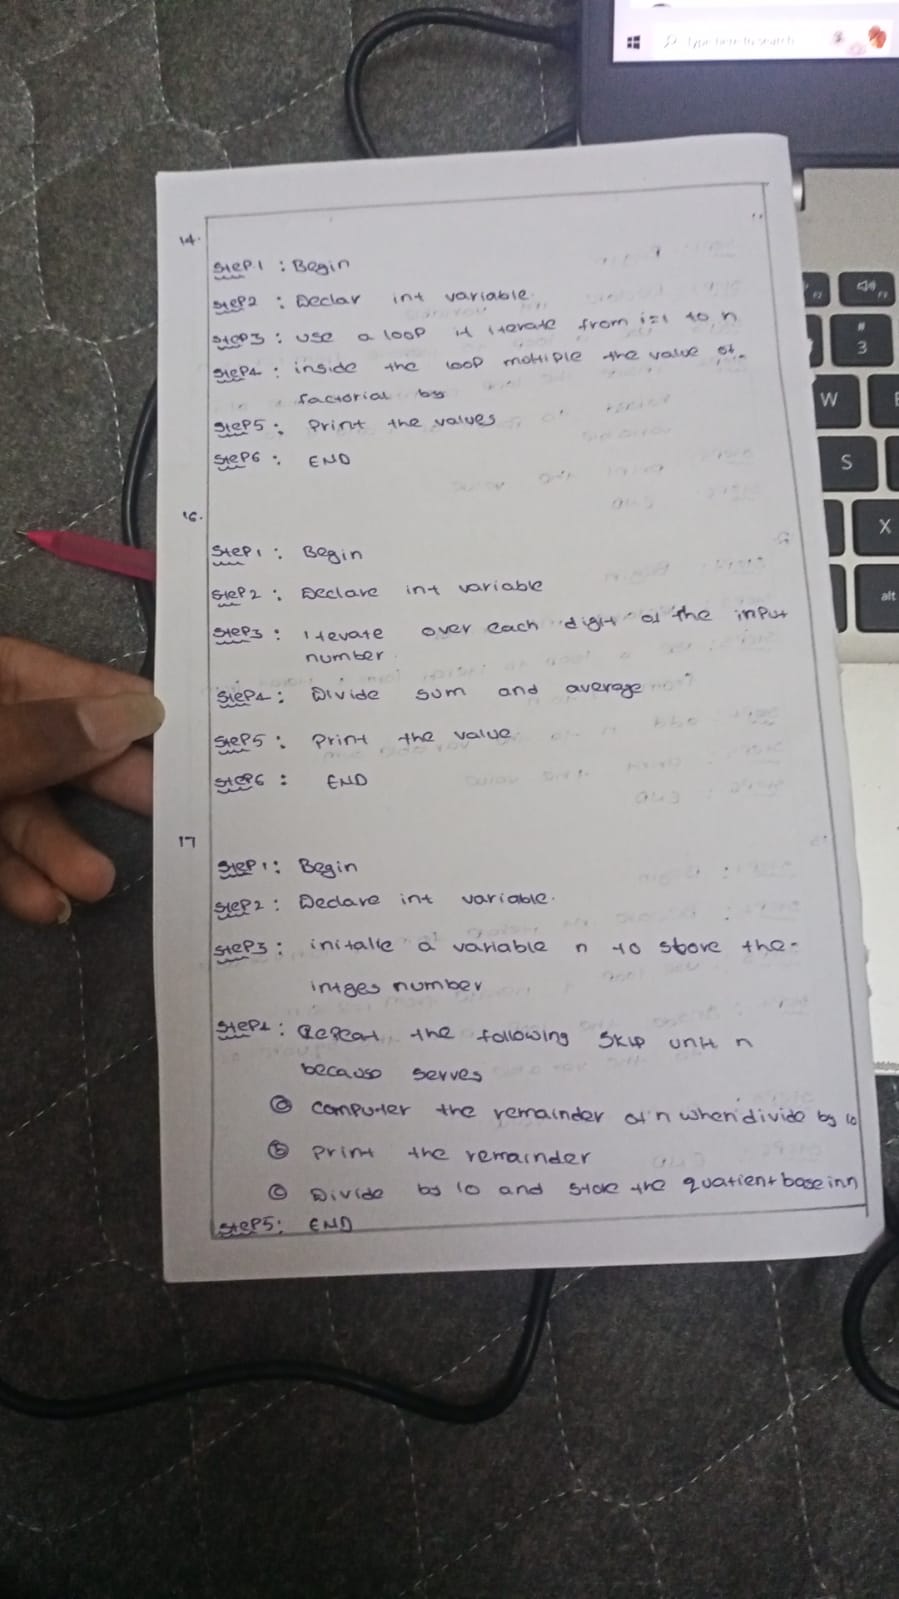 Type here to search
F2
F3
#
3
W
S
X
alt
14.
Step.1 : Begin
Step2 : Declar int variable.
Step3 : use a loop it iterate from i=1 to n
Step4 : inside the loop moltiple the value of.
factorial by
Step5 : Print the values
Step6 : END
16.
Step1 : Begin
Step2 : Declare int variable
Step3 : iterate over each digit of the input
number.
Step4 : Divide sum and average
Step5 : Print the value.
Step6 : END
17
Step1 : Begin
Step2 : Declare int variable.
Step3 : initalie a variable n to store the-
intges number
Step4 : Repeat the following skip unit n
because serves
(a) computer the remainder of n when divide by 10
(b) Print the remainder
(c) Divide by 10 and store the quatient base inn
Step5 : END